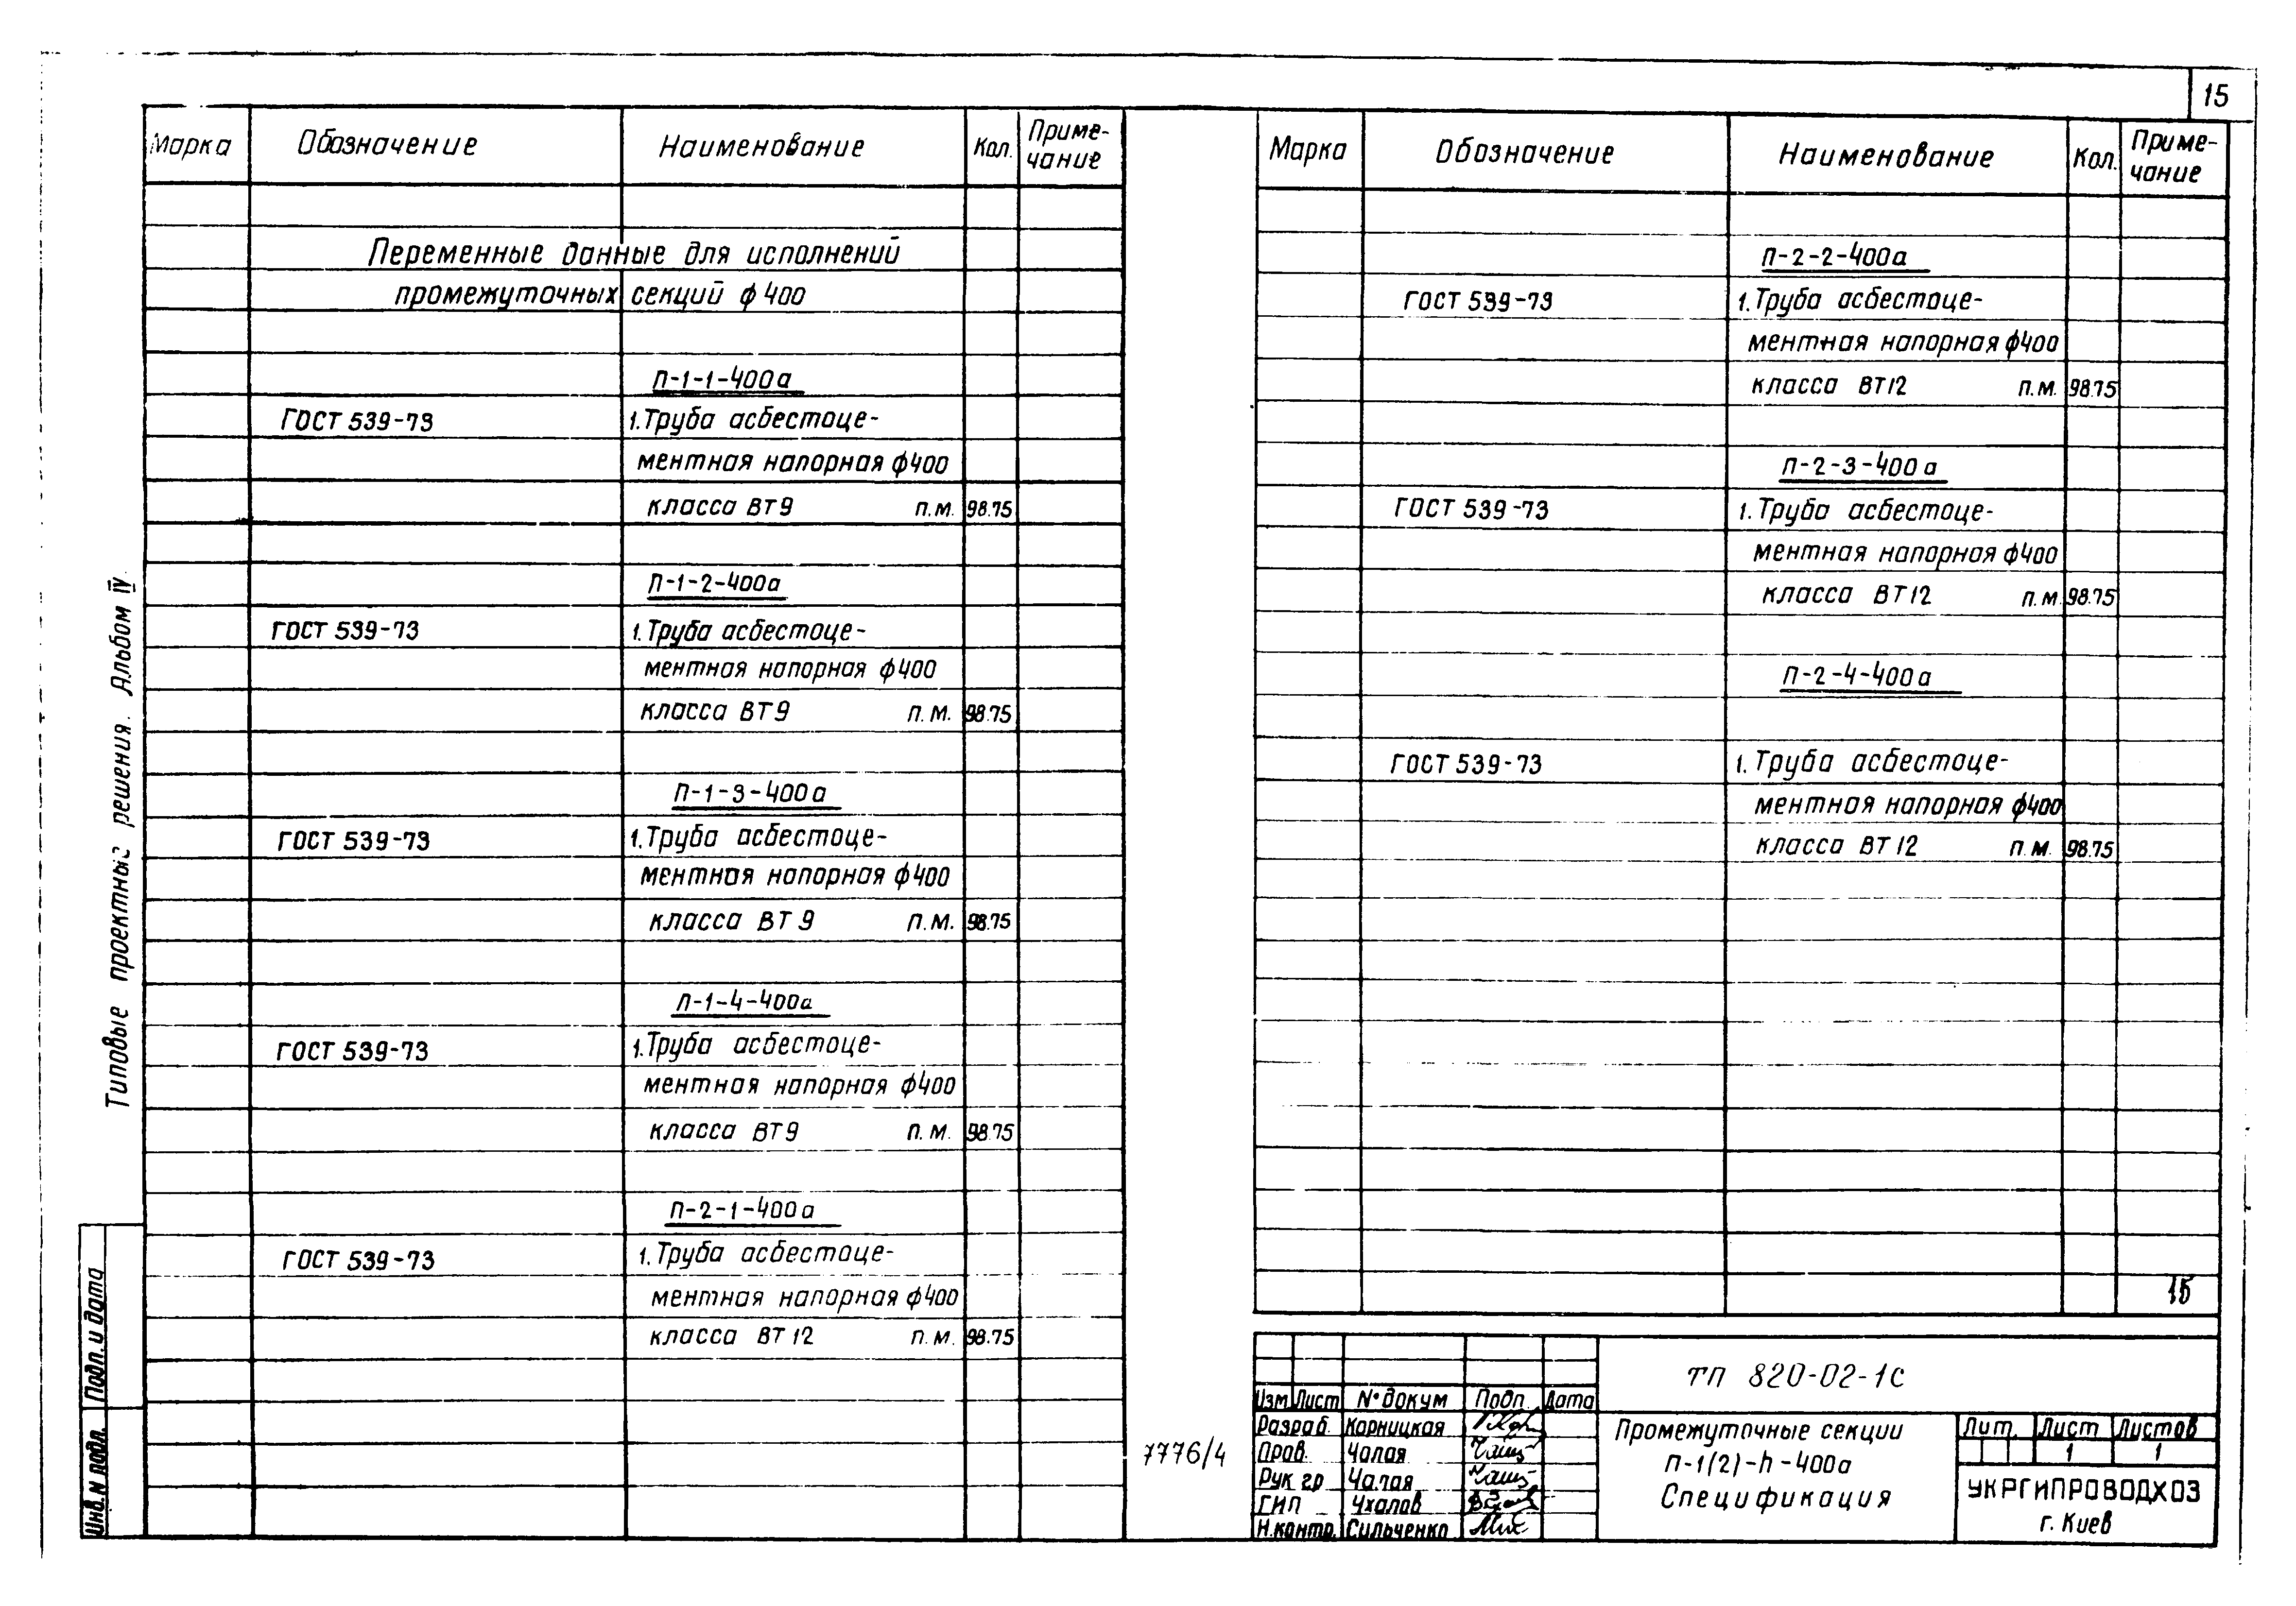 15
Марка Обозначение Наименование Кол. Приме-
чание
Переменные данные для исполнений
промежуточных секций ф 400
П-1-1-400а
ГОСТ 539-73 1. Труба асбестоце-
ментная напорная ф400
класса ВТ9 п.м. 98.75
П-1-2-400а
ГОСТ 539-73 1. Труба асбестоце-
ментная напорная ф400
класса ВТ9 п.м. 98.75
П-1-3-400а
ГОСТ 539-73 1. Труба асбестоце-
ментная напорная ф400
класса ВТ9 п.м. 98.75
П-1-4-400а
ГОСТ 539-73 1. Труба асбестоце-
ментная напорная ф400
класса ВТ9 п.м. 98.75
П-2-1-400а
ГОСТ 539-73 1. Труба асбестоце-
ментная напорная ф400
класса ВТ12 п.м. 98.75
Марка Обозначение Наименование Кол. Приме-
чание
П-2-2-400а
ГОСТ 539-73 1. Труба асбестоце-
ментная напорная ф400
класса ВТ12 п.м. 98.75
П-2-3-400а
ГОСТ 539-73 1. Труба асбестоце-
ментная напорная ф400
класса ВТ12 п.м. 98.75
П-2-4-400а
ГОСТ 539-73 1. Труба асбестоце-
ментная напорная ф400
класса ВТ12 п.м. 98.75
15
Типовые проектные решения. Альбом IV
Подп. и дата
Инв. N подл.
7776/4
ТП 820-02-1с
Изм Лист N° докум Подп. Дата
Разраб. Корницкая
Пров. Чалая
Рук гр Чалая
ГИП Чхалав
Н.контр. Сильченко
Промежуточные секции
П-1(2)-h-400а
Спецификация
Лит. Лист Листов
1 1
УКРГИПРОВОДХОЗ
г. Киев